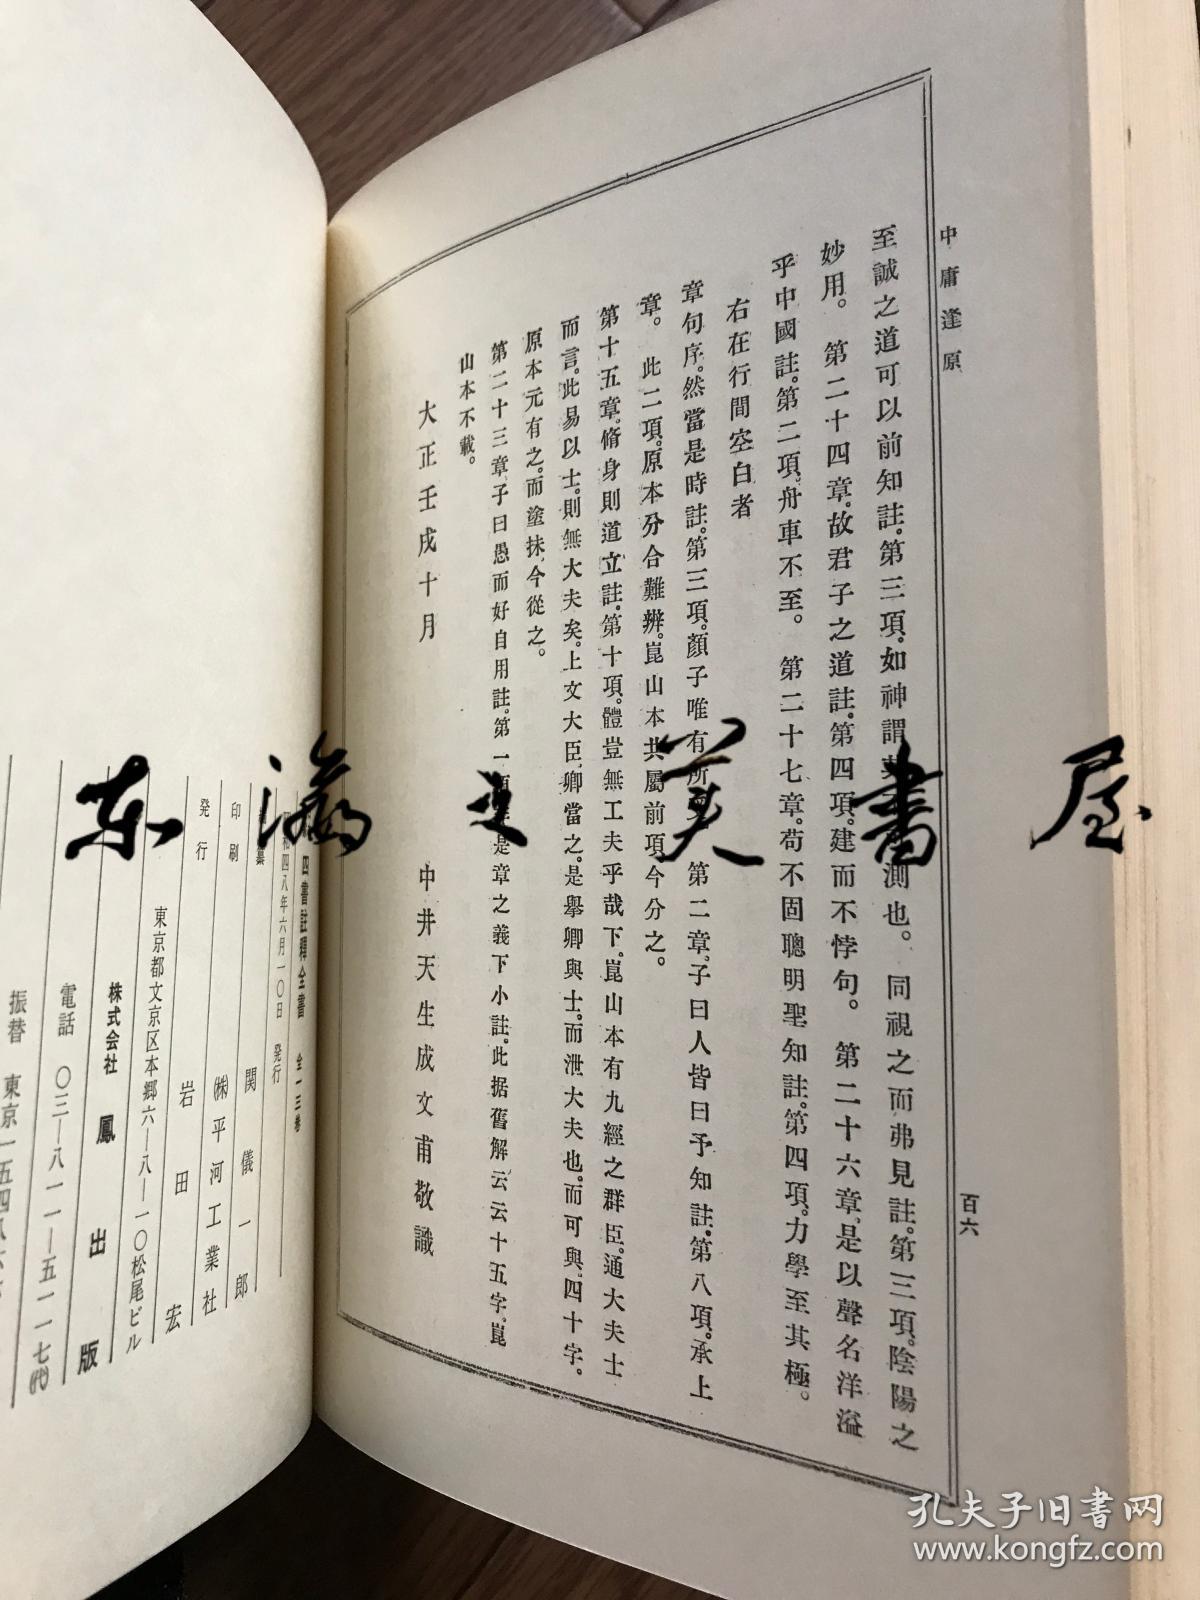 中庸逢原
百六
至誠之道可以前知註。第三項。如神謂其 測也。 同視之而弗見註。第三項。陰陽之
妙用。 第二十四章。故君子之道註。第四項。建而不悖句。 第二十六章。是以聲名洋溢
乎中國註。第二項。舟車不至。 第二十七章。苟不固聰明聖知註。第四項。力學至其極。
右在行間空白者
章句序。然當是時註。第三項。顏子唯有所 第二章。子曰人皆曰予知註。第八項。承上
章。 此二項。原本分合難辨。崑山本共屬前項。今分之。
第十五章。脩身則道立註。第十項。體豈無工夫乎哉下。崑山本有九經之群臣。通大夫士
而言。此易以士。則無大夫矣。上文大臣。卿當之。是擧卿與士。而泄大夫也。而可與。四十字。
原本元有之。而塗抹。今從之。
第二十三章。子曰愚而好自用註。第一項 是章之義下小註。此据舊解云云十五字。崑
山本不載。
大正壬戌十月
中井天生成文甫敬識
四書註釋全書 全一三巻
和四八年六月一〇日 発行
纂 関儀一郎
印刷 ㈱平河工業社
発行 岩田宏
東京都文京区本郷六—八—一〇松尾ビル
株式会社 鳳出版
電話 〇三—八一一—五一一七㈹
振替 東京一五四八六
东瀛之美書屋
孔夫子旧书网
www.kongfz.com